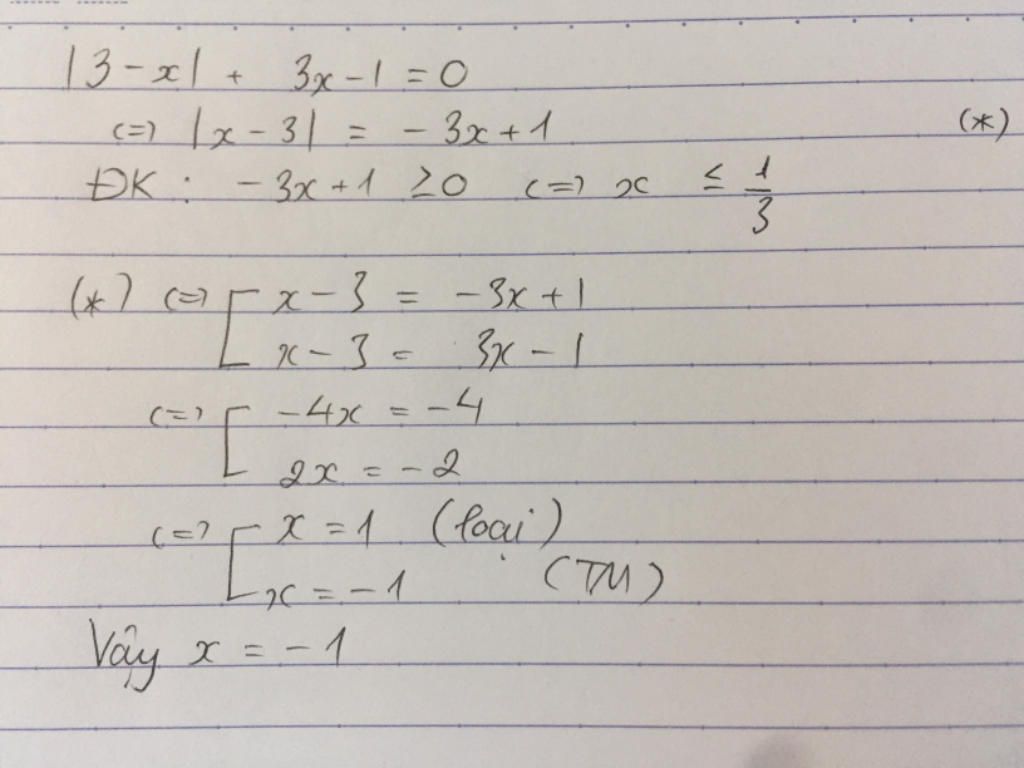 |3 - x| + 3x - 1 = 0
<=> |x - 3| = - 3x + 1 (*)
ĐK : - 3x + 1 ≥ 0 <=> x ≤ 1/3
(*) <=> [ x - 3 = - 3x + 1
x - 3 = 3x - 1
<=> [ - 4x = - 4
2x = - 2
<=> [ x = 1 (loại)
x = - 1 (TM)
Vậy x = - 1